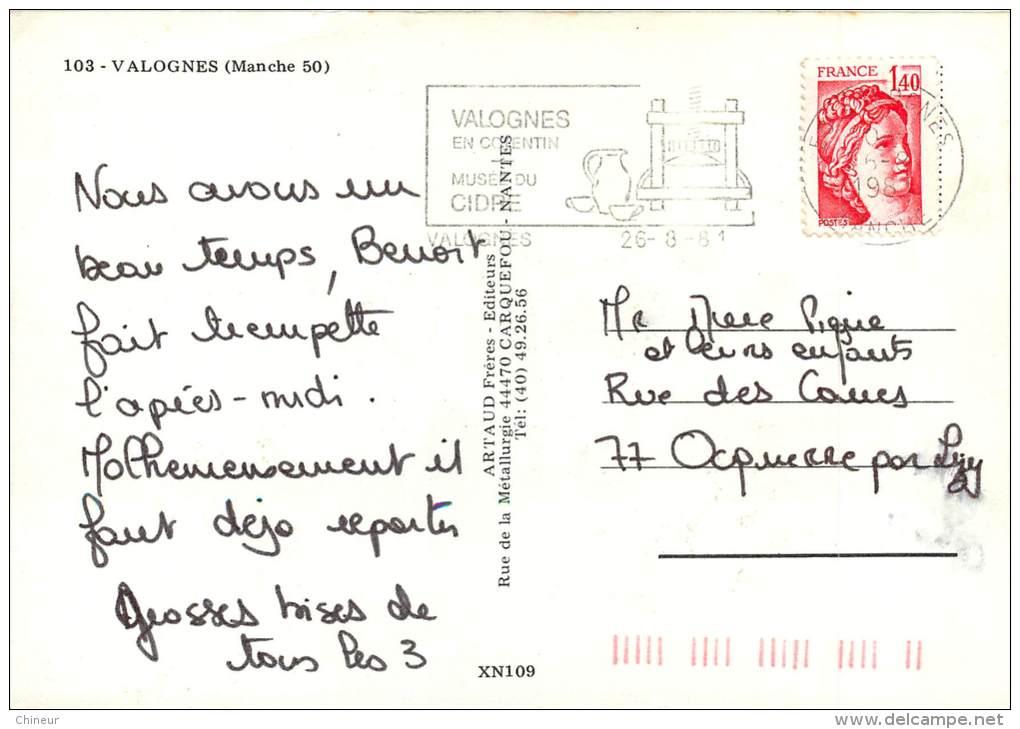 103 - VALOGNES (Manche 50)
VALOGNES
EN COTENTIN
MUSÉE DU
CIDRE
VALOGNES
26-8-81
FRANCE
1,40
POSTES
198
MANCHE
Nous avons un
beau temps, Benoit
fait trempette
l'après-midi.
Malheureusement il
faut déjà repartir
Grosses bises de
tous les 3
ARTAUD Frères - Editeurs
Rue de la Métallurgie 44470 CARQUEFOU - NANTES
Tél: (40) 49.26.56
Mr Mme Pigne
et leurs enfants
Rue des Caves
77 Ocquerre par Lizy
XN109
Chineur
www.delcampe.net